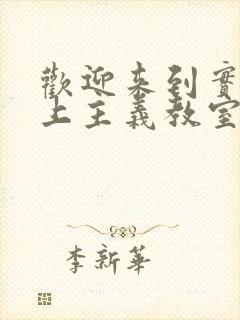 歡迎來到實
上主義教室
李新華